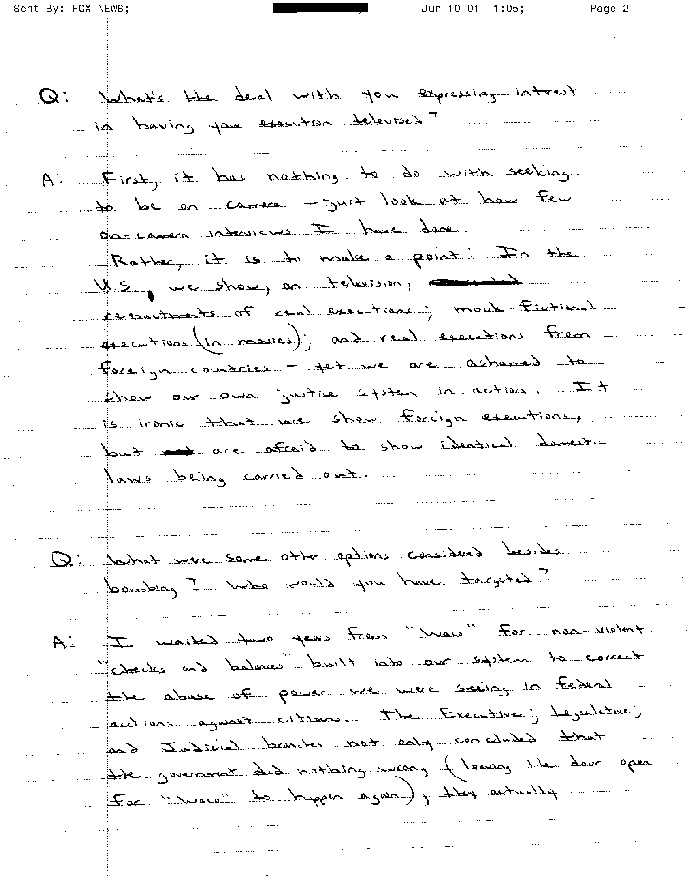 Sent By: FOX NEWS; Jun 10 01 1:05; Page 2
Q: What's the deal with you expressing intrest
in having your execution televised?
A: First, it has nothing to do with seeking
to be on camera - just look at how few
on-camera interviews I have done.
Rather, it is to make a point: In the
U.S., we show, on television,
reenactments of real executions; mock fictional
executions (in movies); and real executions from
foreign countries - yet we are ashamed to
show our own justice system in action. It
is ironic that we show foreign executions,
but are afraid to show identical domestic
laws being carried out.
Q: What were some other options considered besides
bombing? Who would you have targeted?
A: I waited two years from "Waco" for non-violent
"checks and balances" built into our system to correct
the abuse of power we were seeing in federal
actions against citizens. The Executive; Legislative;
and Judicial branches not only concluded that
the government did nothing wrong (leaving the door open
for "Waco" to happen again), they actually